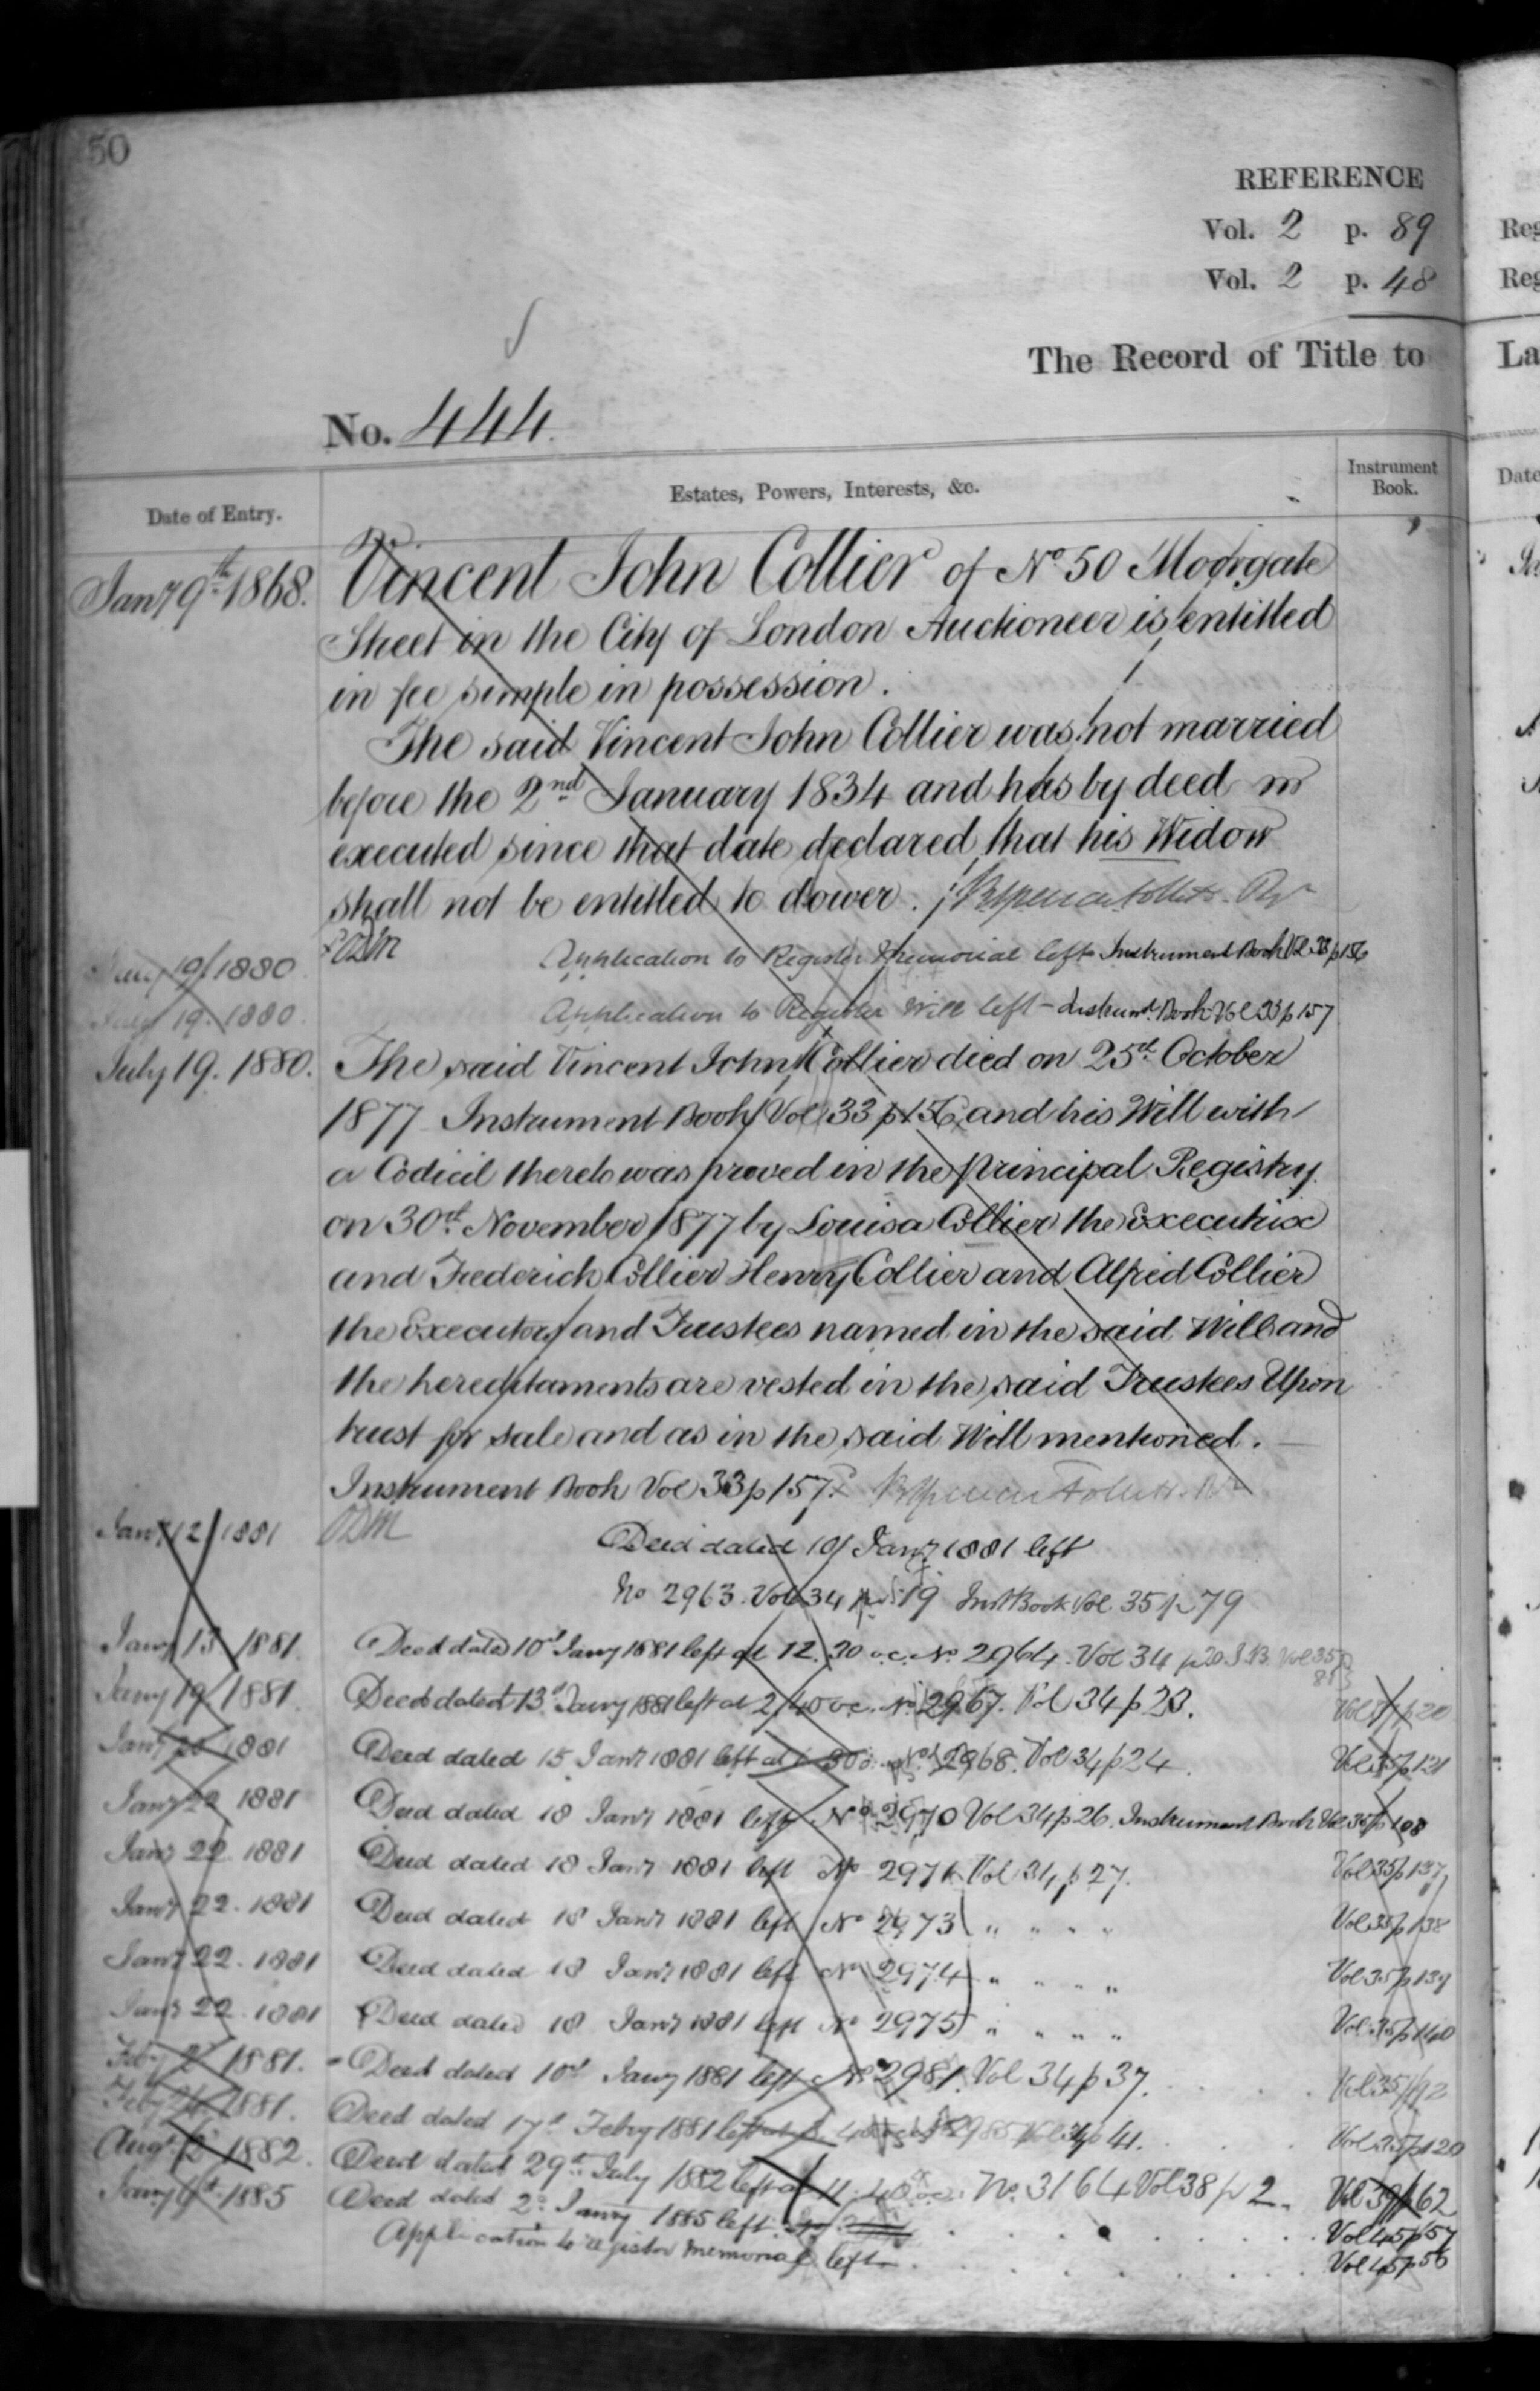 50
REFERENCE
Vol. 2 p. 89
Vol. 2 p. 48
The Record of Title to
No. 444.
Date of Entry.
Estates, Powers, Interests, &c.
Instrument Book.
Jany 9th 1868. Vincent John Collier of No 50 Moorgate
Street in the City of London Auctioneer is entitled
in fee simple in possession.
The said Vincent John Collier was not married
before the 2nd January 1834 and has by deed
executed since that date declared that his Widow
shall not be entitled to dower.
19 1880 Application to Register Memorial left Instrument Book Vol 33 p 156
July 19. 1880 Application to Register Will left - Instrumt. Book Vol 33 p 157
July 19. 1880. The said Vincent John Collier died on 25th October
1877 Instrument Book Vol 33 p 156 and his Will with
a Codicil thereto was proved in the Principal Registry
on 30th November 1877 by Louisa Collier the Executrix
and Frederick Collier Henry Collier and Alfred Collier
the Executors and Trustees named in the said Will and
the hereditaments are vested in the said Trustees Upon
trust for sale and as in the said Will mentioned.
Instrument Book Vol 33 p 157.
Jany 12 1881 Deed dated 10 Jany 1881 left
No 2963. Vol 34 p 19 Inst Book Vol 35 p 79
Jany 13 1881. Deed dated 10th Jany 1881 left at 12.30 o.c. No 2964. Vol 34 p 20 I.B. Vol 35 p
Jany 19 1881. Deed dated 13th Jany 1881 left at 2/40 o.c. No 2967. Vol 34 p 23.
Jany 20 1881 Deed dated 15 Jany 1881 left at 2968. Vol 34 p 24. Vol 35 p 121
Jany 22 1881 Deed dated 18 Jany 1881 left No 2970 Vol 34 p 26. Instrument Book Vol 35 p 108
Jany 22 1881 Deed dated 18 Jany 1881 left No 2971 Vol 34 p 27. Vol 35 p 137
Jany 22. 1881 Deed dated 18 Jany 1881 left No 2973 " " " " Vol 35 p 138
Jany 22. 1881 Deed dated 18 Jany 1881 left No 2974 " " " " Vol 35 p 139
Jany 22. 1881 Deed dated 18 Jany 1881 left No 2975 " " " " Vol 35 p 140
Feby 2 1881. Deed dated 10th Jany 1881 left No 2981. Vol 34 p 37. Vol 35
Feby 1881. Deed dated 17th Febry 1881 left at 2985 Vol 34 p 41. Vol 35 p 120
Augt 2 1882. Deed dated 29th July 1882 left at 11.40 o.c. No. 3164 Vol 38 p 2. Vol 39 p 62
Jany 6th 1885 Deed dated 2d Jany 1885 left Vol 45 p 57
Application to register memorial left Vol 45 p 56